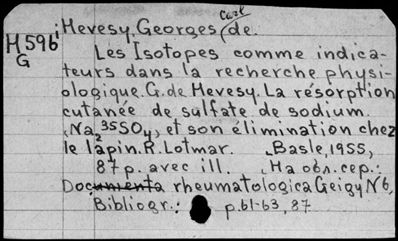 Hevesy, Georges Carl de.
H596i
G
Les Isotopes comme indica-
teurs dans la recherche physi-
ologique. G. de Hevesy. La résorption
cutanée de sulfate de sodium.
(Na₂³⁵SO₄) et son élimination chez
le lapin. R. Lotmar. Basle, 1955,
87 p. avec ill. На обл. сер.:
Documenta rheumatologica Geigy N6,
Bibliogr.: p.61-63, 87